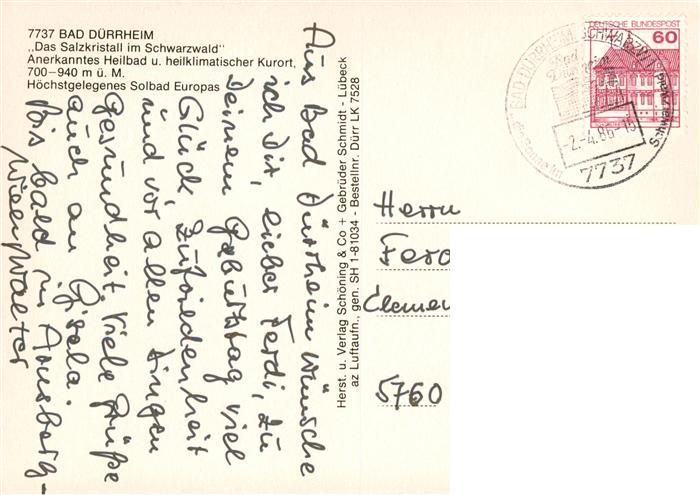 7737 BAD DÜRRHEIM
„Das Salzkristall im Schwarzwald"
Anerkanntes Heilbad u. heilklimatischer Kurort,
700–940 m ü. M.
Höchstgelegenes Solbad Europas
Aus Bad Dürrheim wünsche
ich Dir, lieber Ferdi, zu
Deinem Geburtstag viel
Glück, Zufriedenheit
und vor allen Dingen
Gesundheit. Viele Grüße
auch an Gisela.
Bis bald in Arnsberg-
Walter
Herst. u. Verlag Schöning & Co + Gebrüder Schmidt - Lübeck
az Luftaufn., gen. SH 1-81034 - Bestellnr. Dürr LK 7528
DEUTSCHE BUNDESPOST
60
BAD DÜRRHEIM, SCHWARZW
-2.-4.86-15
7737
Herrn
Ferd
Clemen
5760